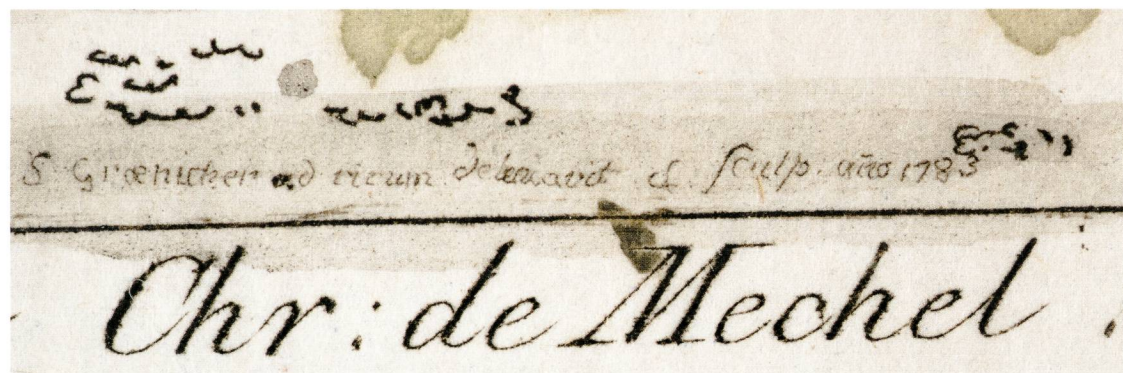 S Grœnicher ad vivum delineavit et sculp. año 1783
Chr: de Mechel.